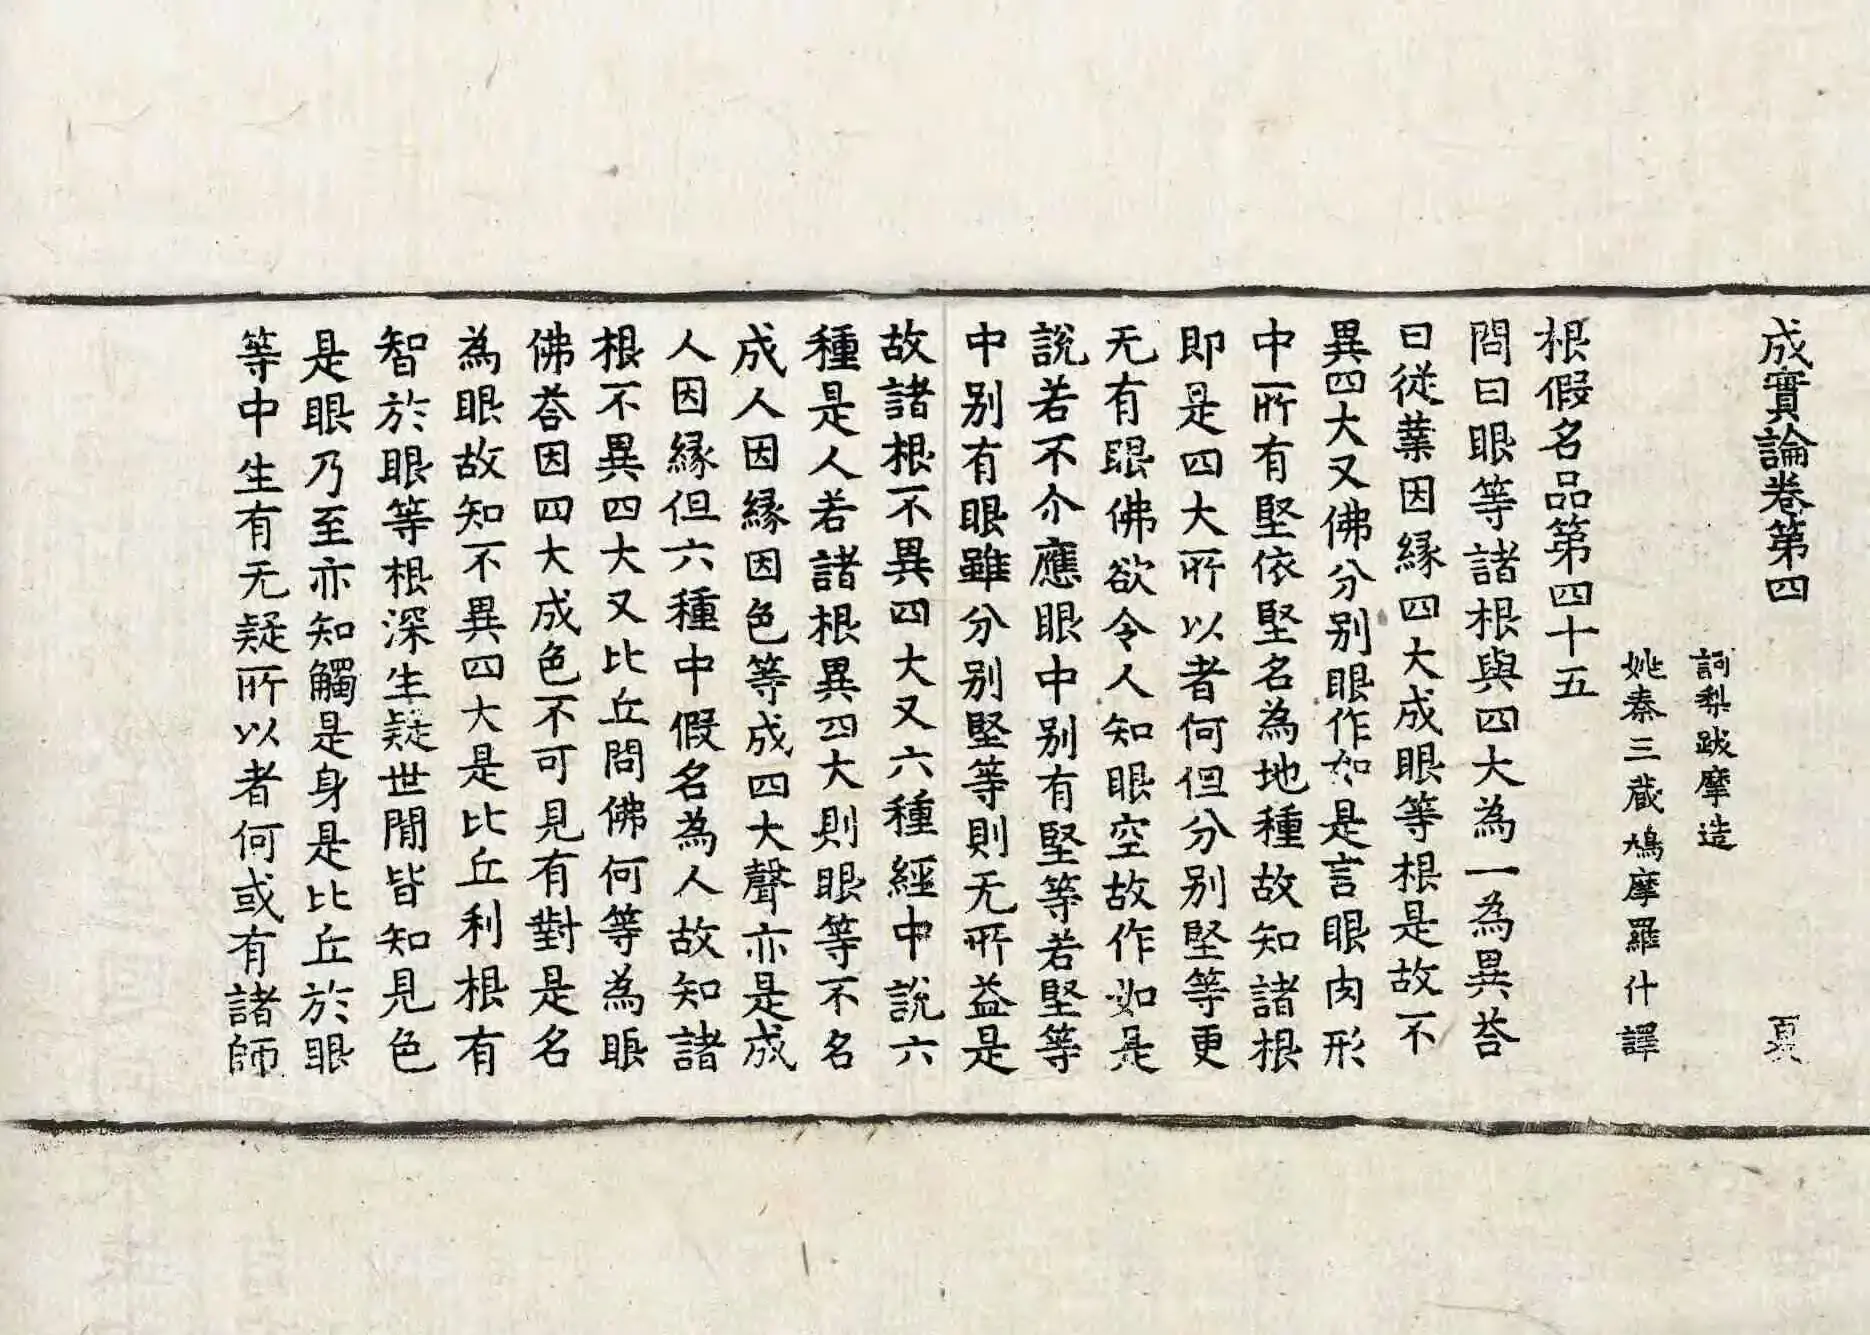 成實論卷第四 夏
訶梨跋摩造
姚秦三蔵鳩摩羅什譯
根假名品第四十五
問曰眼等諸根與四大為一為異荅
曰從業因縁四大成眼等根是故不
異四大又佛分別眼作如是言眼肉形
中所有堅依堅名為地種故知諸根
即是四大所以者何但分別堅等更
无有眼佛欲令人知眼空故作如是
說若不尒應眼中別有堅等若堅等
中別有眼雖分別堅等則无所益是
故諸根不異四大又六種經中說六
種是人若諸根異四大則眼等不名
成人因縁因色等成四大聲亦是成
人因縁但六種中假名為人故知諸
根不異四大又比丘問佛何等為眼
佛荅因四大成色不可見有對是名
為眼故知不異四大是比丘利根有
智於眼等根深生疑世間皆知見色
是眼乃至亦知觸是身是比丘於眼
等中生有无疑所以者何或有諸師